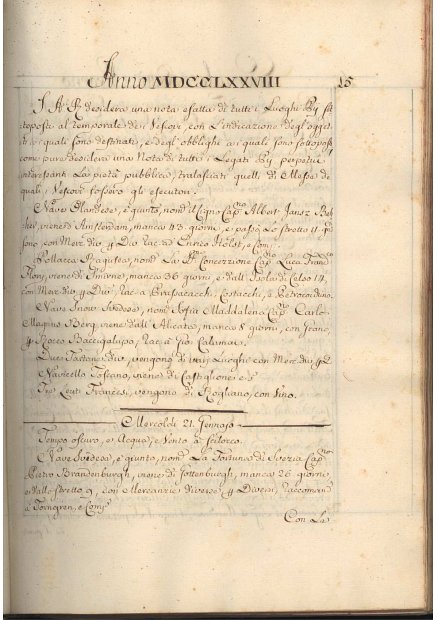 Anno MDCCLXXVIII 15
S. A. R. desidera una nota esatta di tutti i Luoghi Pij sot
toposti al temporale dei Vescovi, con l'indicazione degl'ogget
ti a i quali sono destinati, e degl'obblighi a i quali sono sottoposti
come pure desidera una Nota di tutti i Legati Pij perpetui
interessanti la pietà pubblica, tralasciati quelli di Messe de
quali i Vescovi fossero gli esecutori.
Nave Olandese, è giunto, nom. il Cigno Cap.no Albert Jansz Bak
ker, viene d'Amsterdam, manca 43 giorni, e passò lo stretto 11 giorni
sono, con Merc. div. Div. Rac. ad Enrico, e Comp.
Pollacca Ragusea, nom. La Concezione Cap. Luca
viene di Smirne, manca 36 giorni, e dall'Isola di
con Merc. div. Div. Rac. a Costacchi, e Petrocochino.
Nave Snow Svedese, nom. Sofia Maddalena Cap.no Carlo
Magnus Berg, viene dall'Alicata, manca 8 giorni, con Grano,
Rocco Baccigalupo, Rac. a Gio: Calamai.
Due Tartane div. vengono di varj Luoghi con Merc. div.
Navicello Toscano, viene di Castiglione
Tre Leuti Francesi, vengono di Rogliano, con Vino.
Mercoldì 21. Gennajo
Tempo oscuro, e Acqua, e Vento a Scilocco.
Nave Svedese, è giunto, nom. La Fortuna di Svezia Cap.no
Pietro Brandenburgh, viene di Gottenburgh, manca 26 giorni
e dallo stretto 9, con Mercanzie diverse Diversi, raccoman
a Torngren, e Comp.
Con La